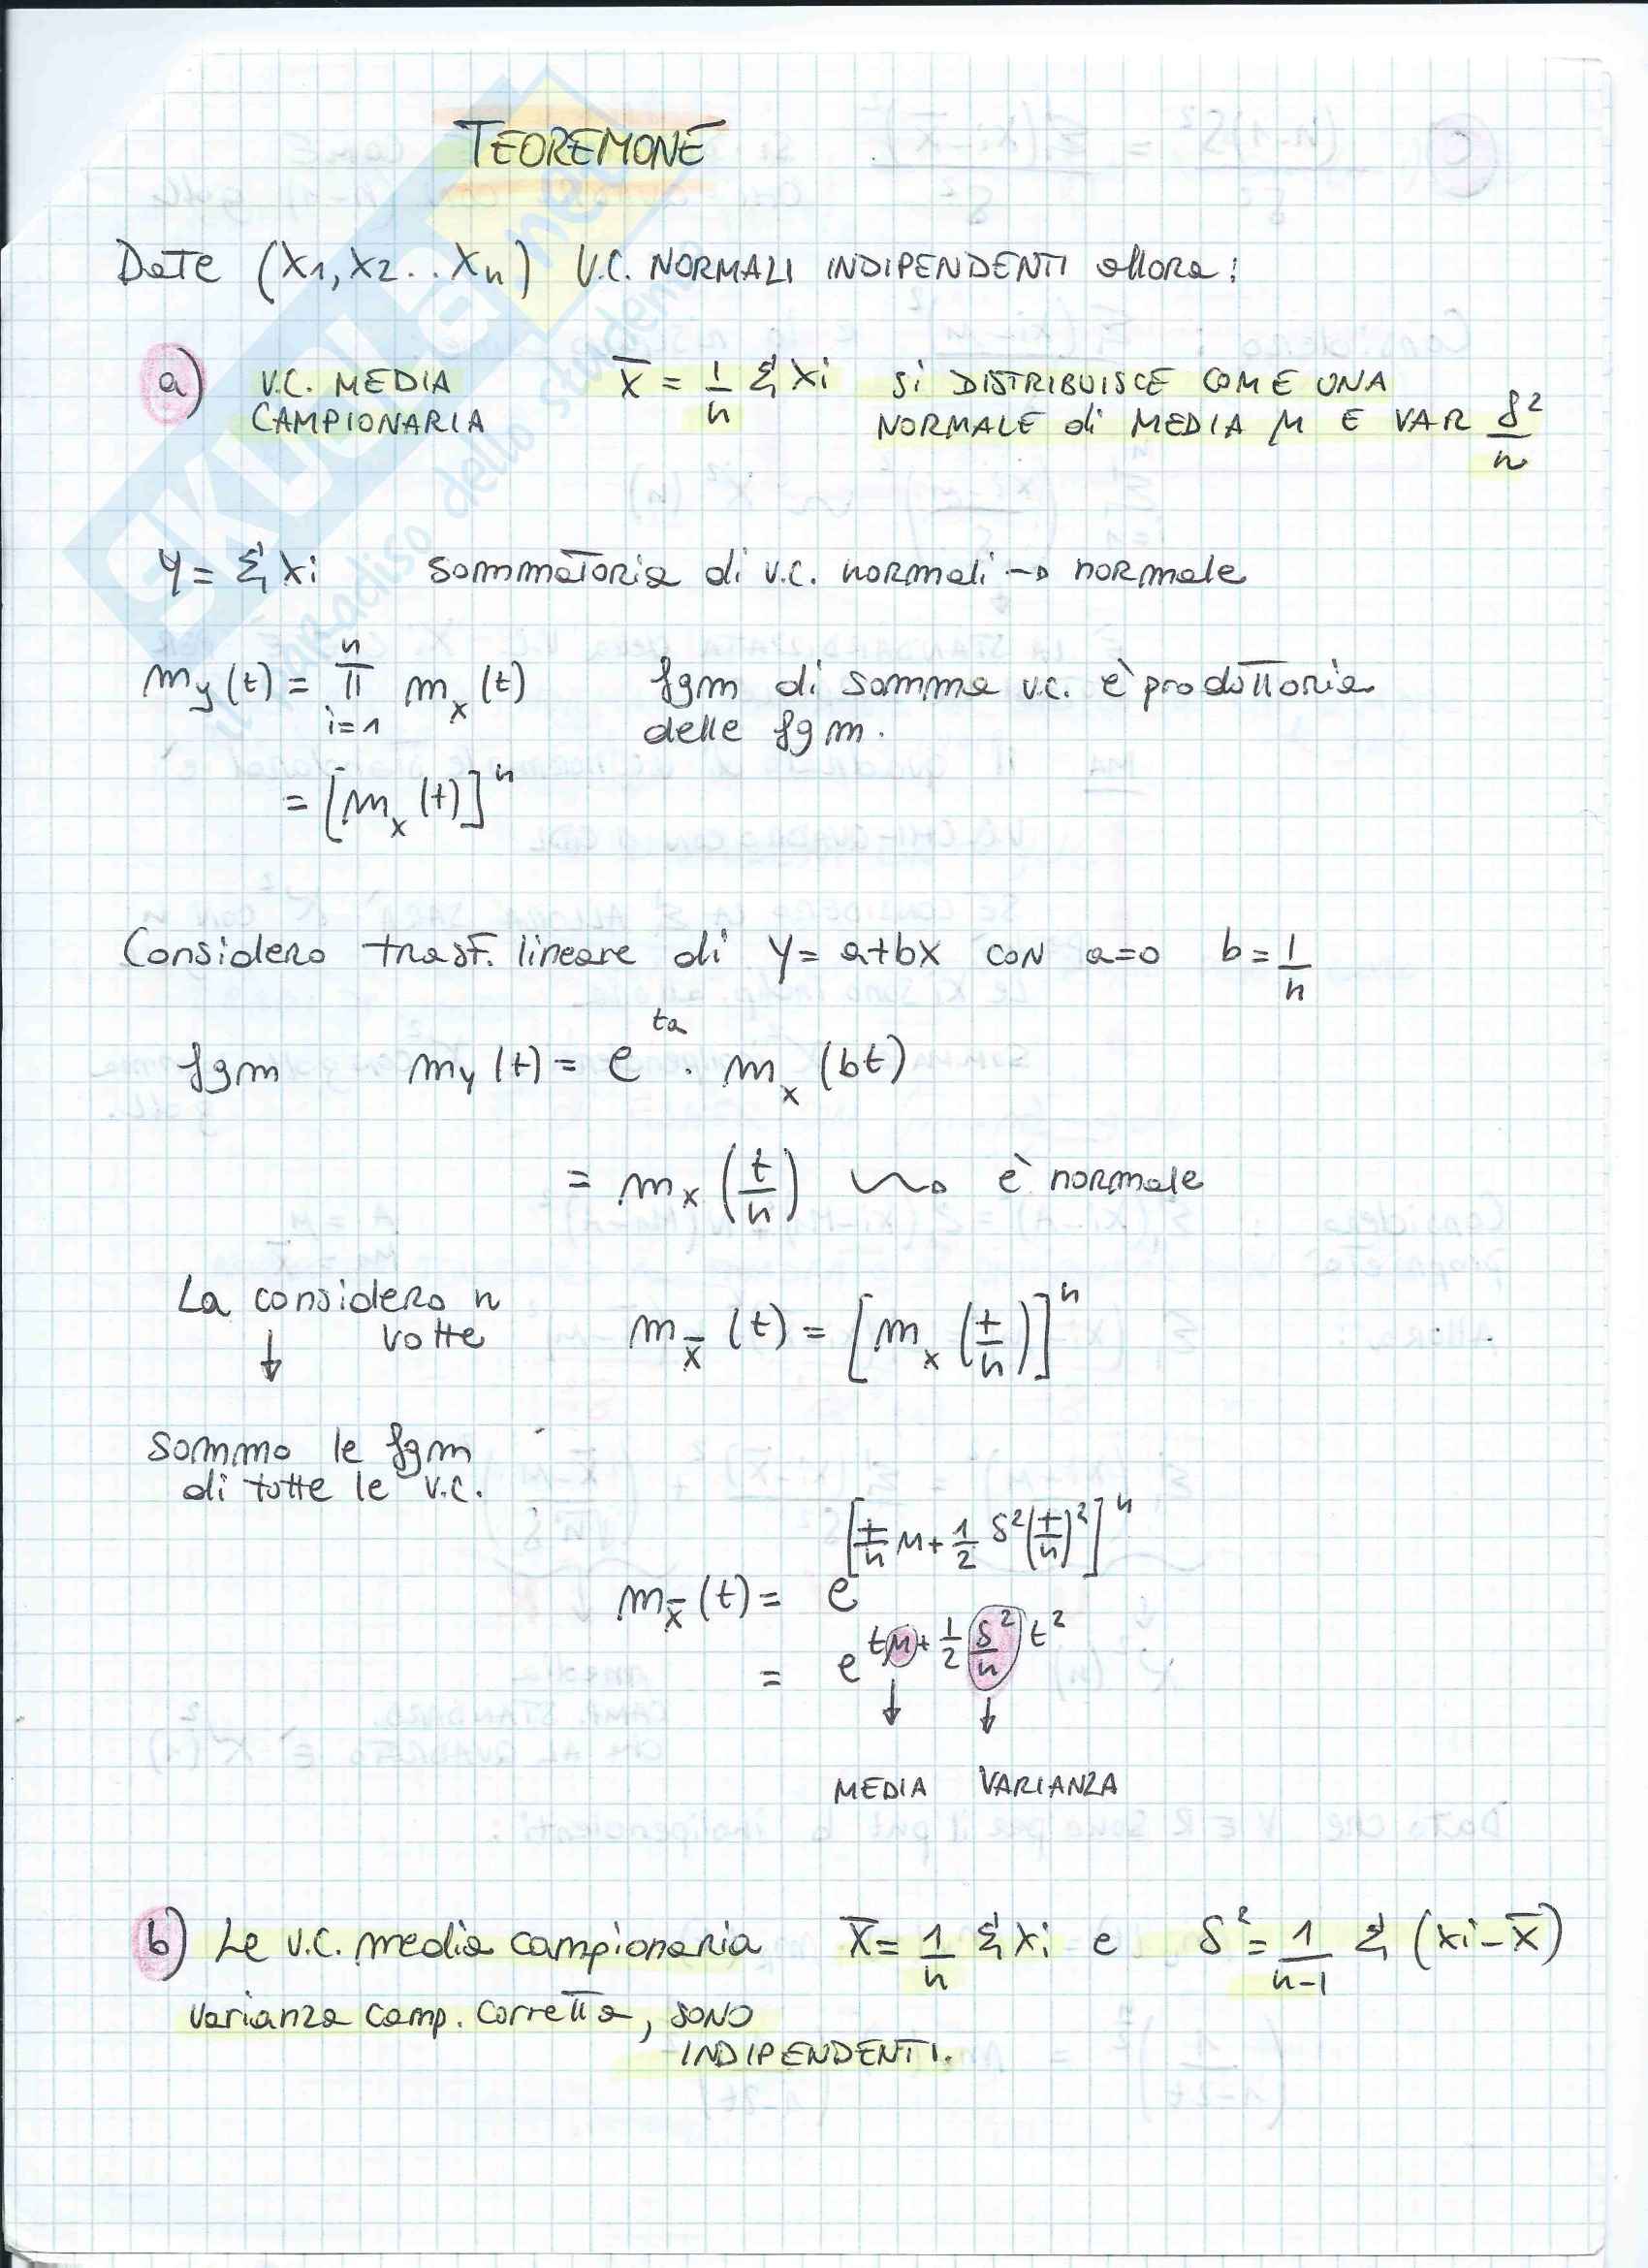 TEOREMONE
Date (X1, X2 .. Xn) V.C. NORMALI INDIPENDENTI allora:
a) V.C. MEDIA CAMPIONARIA X̅ = 1/n Σ Xi si DISTRIBUISCE COME UNA
NORMALE di MEDIA μ E VAR δ²/n
Y = Σ Xi sommatoria di v.c. normali → normale
my(t) = π i=1 n mx(t) fgm di somma v.c. è produttoria
delle fgm.
= [mx(t)]^n
Considero trasf. lineare di Y = a+bX CON a=0 b=1/n
fgm my(t) = e^ta · mx(bt)
= mx(t/n) ⇝ è normale
La considero n
volte
↓
mX̅(t) = [mx(t/n)]^n
Sommo le fgm
di tutte le v.c.
mX̅(t) = e^[t/n μ + 1/2 δ²(t/n)²]^n
= e^tμ + 1/2 δ²/n t²
↓ ↓
MEDIA VARIANZA
b) Le v.c. media campionaria X̅ = 1/n Σ Xi e δ² = 1/n-1 Σ (xi - X̅)
varianza camp. corretta, SONO
INDIPENDENTI.
SKUOLA.net
il paradiso dello studente